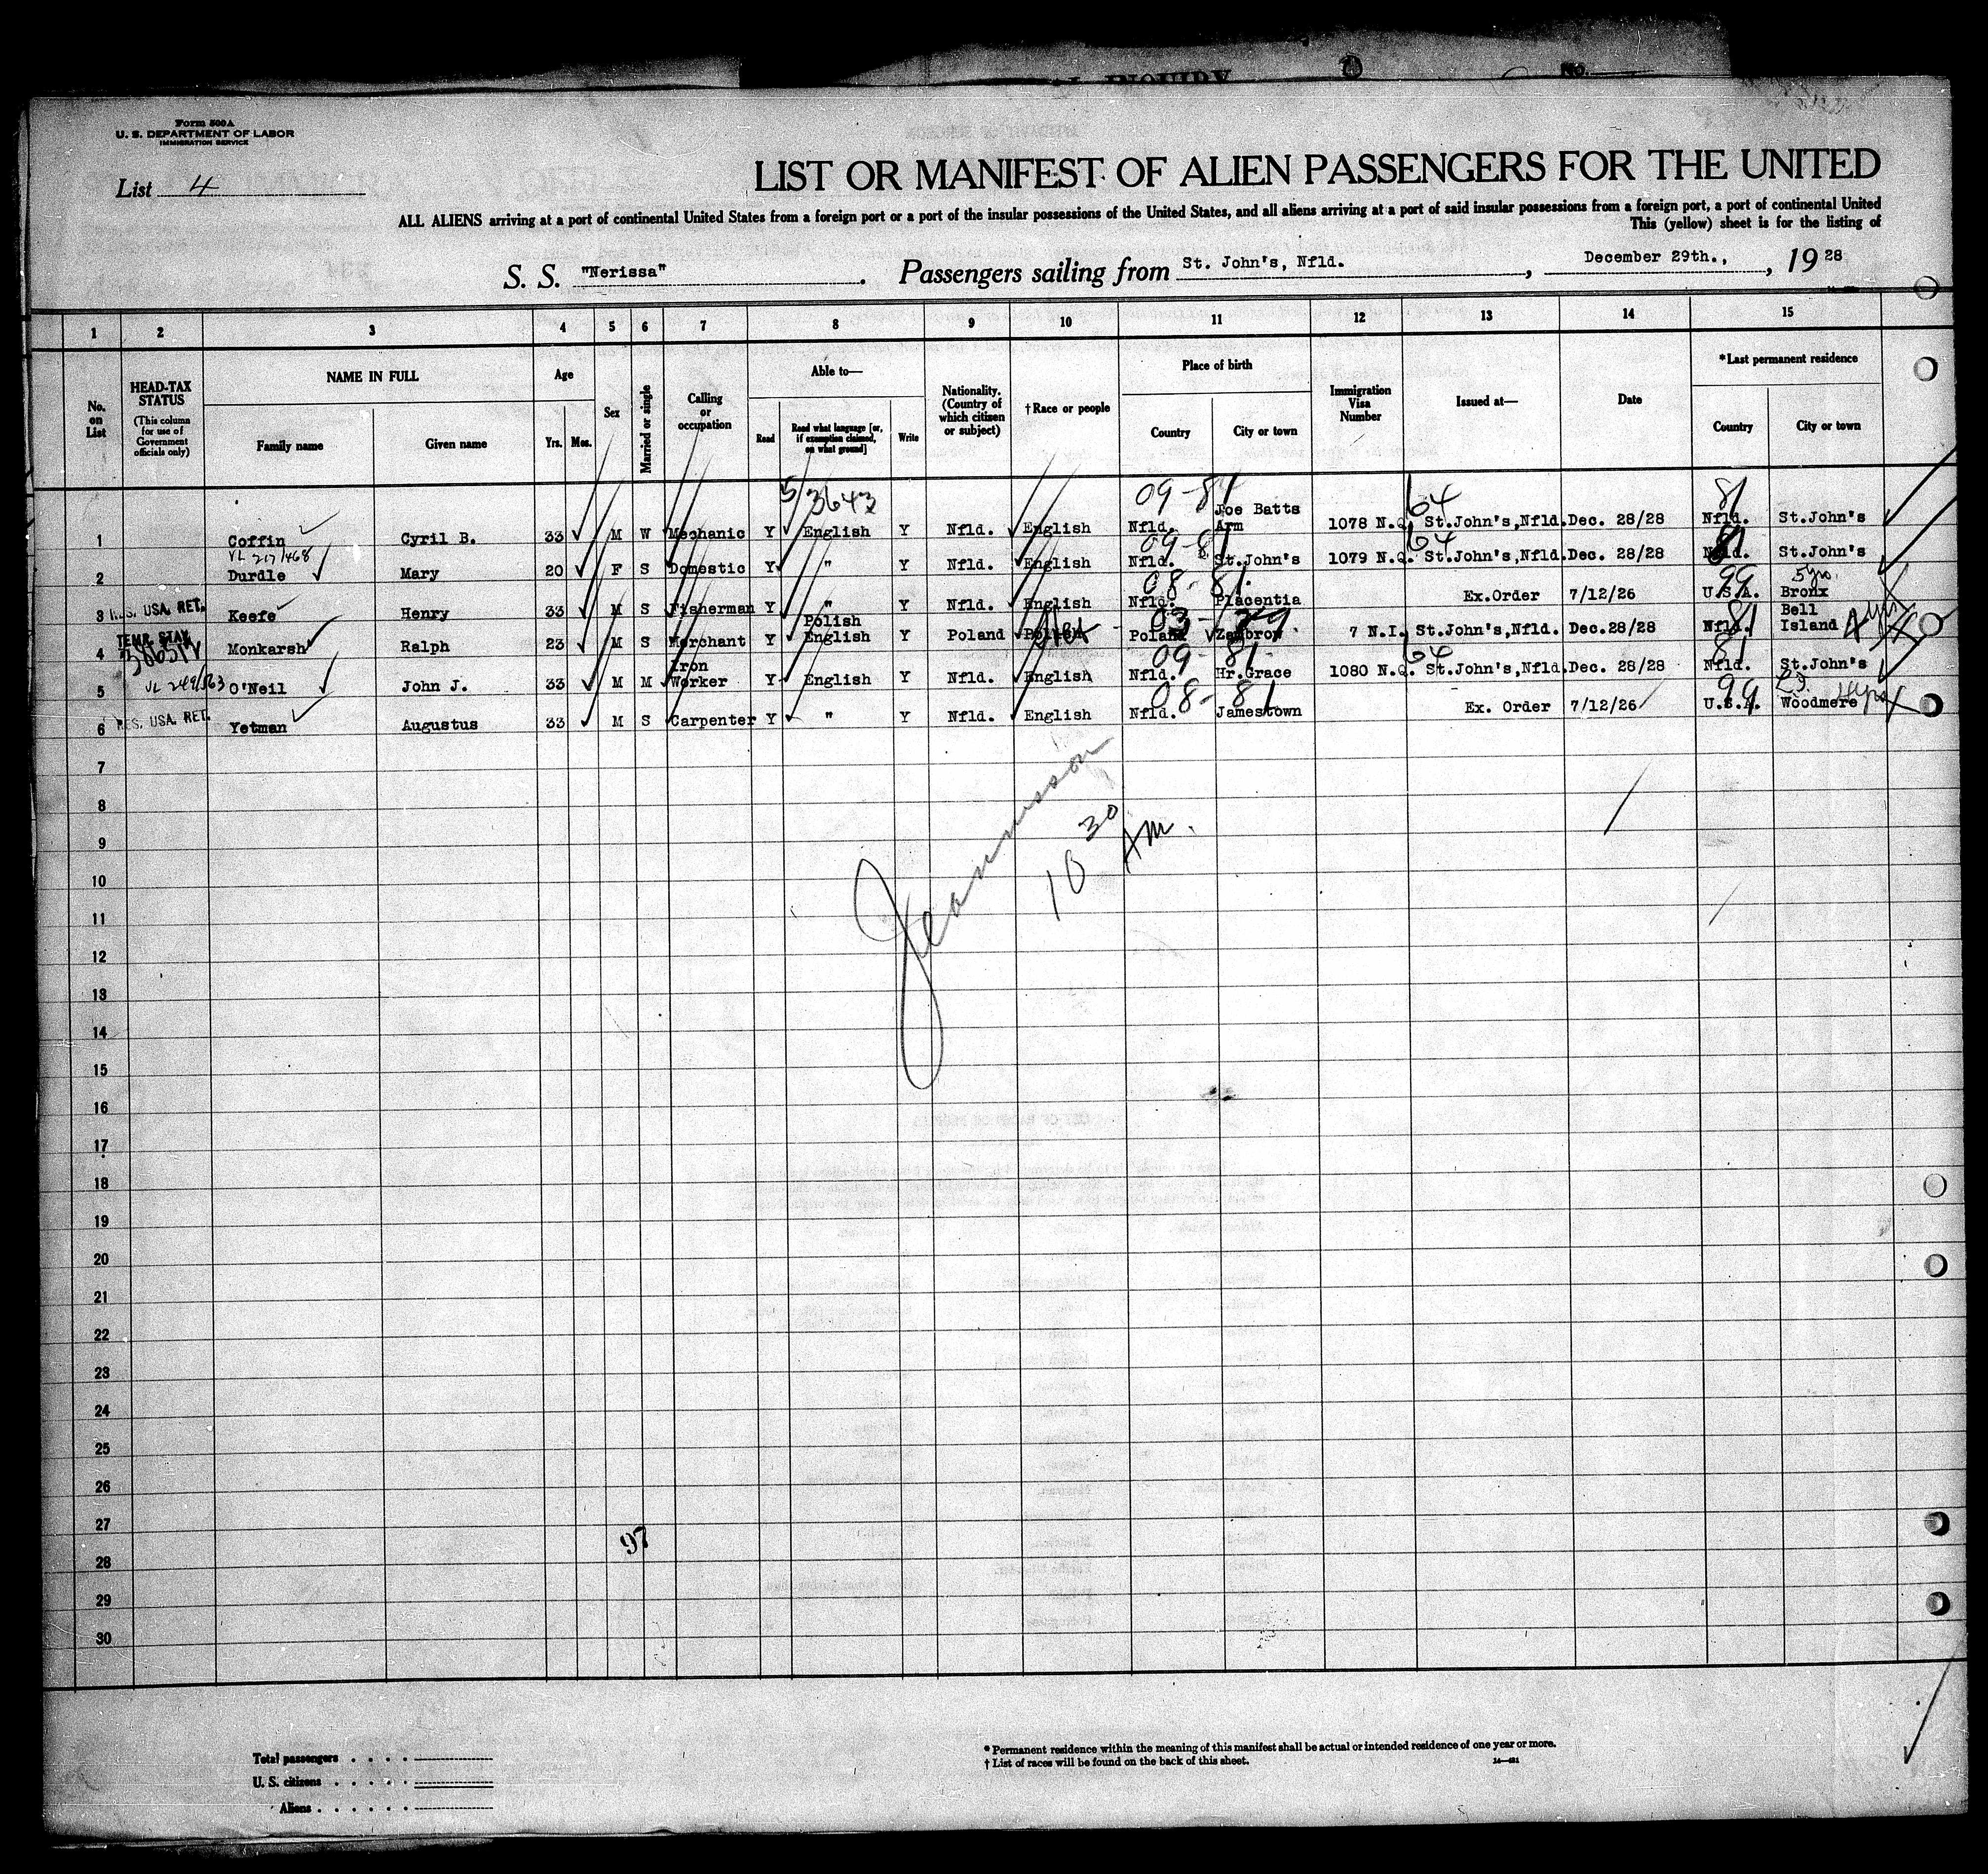 INQUIRY
No.
Form 500A
U. S. DEPARTMENT OF LABOR
IMMIGRATION SERVICE
List 4
LIST OR MANIFEST OF ALIEN PASSENGERS FOR THE UNITED
ALL ALIENS arriving at a port of continental United States from a foreign port or a port of the insular possessions of the United States, and all aliens arriving at a port of said insular possessions from a foreign port, a port of continental United
This (yellow) sheet is for the listing of
S. S. "Nerissa". Passengers sailing from St. John's, Nfld., December 29th., , 19 28
1 2 3 4 5 6 7 8 9 10 11 12 13 14 15
No. on List
HEAD-TAX STATUS
(This column for use of Government officials only)
NAME IN FULL
Family name
Given name
Age
Yrs. Mos.
Sex
Married or single
Calling or occupation
Able to—
Read
Read what language [or, if exemption claimed, on what ground]
Write
Nationality. (Country of which citizen or subject)
† Race or people
Place of birth
Country
City or town
Immigration Visa Number
Issued at—
Date
*Last permanent residence
Country
City or town
5/3643 09-81 64 81
1 Coffin Cyril B. 33 M W Mechanic Y English Y Nfld. English Nfld. Joe Batts Arm 1078 N.Q. St.John's,Nfld. Dec. 28/28 Nfld. St.John's
VL 217/468 09-81 64 81
2 Durdle Mary 20 F S Domestic Y " Y Nfld. English Nfld. St.John's 1079 N.Q. St.John's,Nfld. Dec. 28/28 Nfld. St.John's
08-81 99 5 yrs.
3 RES. USA. RET. Keefe Henry 33 M S Fisherman Y " Y Nfld. English Nfld. Placentia Ex.Order 7/12/26 U.S.A. Bronx
03-79 81
4 TEMP. STAY Monkarsh Ralph 23 M S Merchant Y Polish English Y Poland Polish Poland Zambrow 7 N.I. St.John's,Nfld. Dec.28/28 Nfld. Bell Island
VL 249/563 09-81 64 81
5 O'Neil John J. 33 M M Iron Worker Y English Y Nfld. English Nfld. Hr.Grace 1080 N.Q. St.John's,Nfld. Dec. 28/28 Nfld. St.John's
08-81 99
6 RES. USA. RET. Yetman Augustus 33 M S Carpenter Y " Y Nfld. English Nfld. Jamestown Ex. Order 7/12/26 U.S.A. Woodmere
7
8
9
10
11
12
13
14
15
16
17
18
19
20
21
22
23
24
25
26
27
28
29
30
10 30 AM.
97
Total passengers . . . .
U. S. citizens . . . . .
Aliens . . . . . .
* Permanent residence within the meaning of this manifest shall be actual or intended residence of one year or more.
† List of races will be found on the back of this sheet.